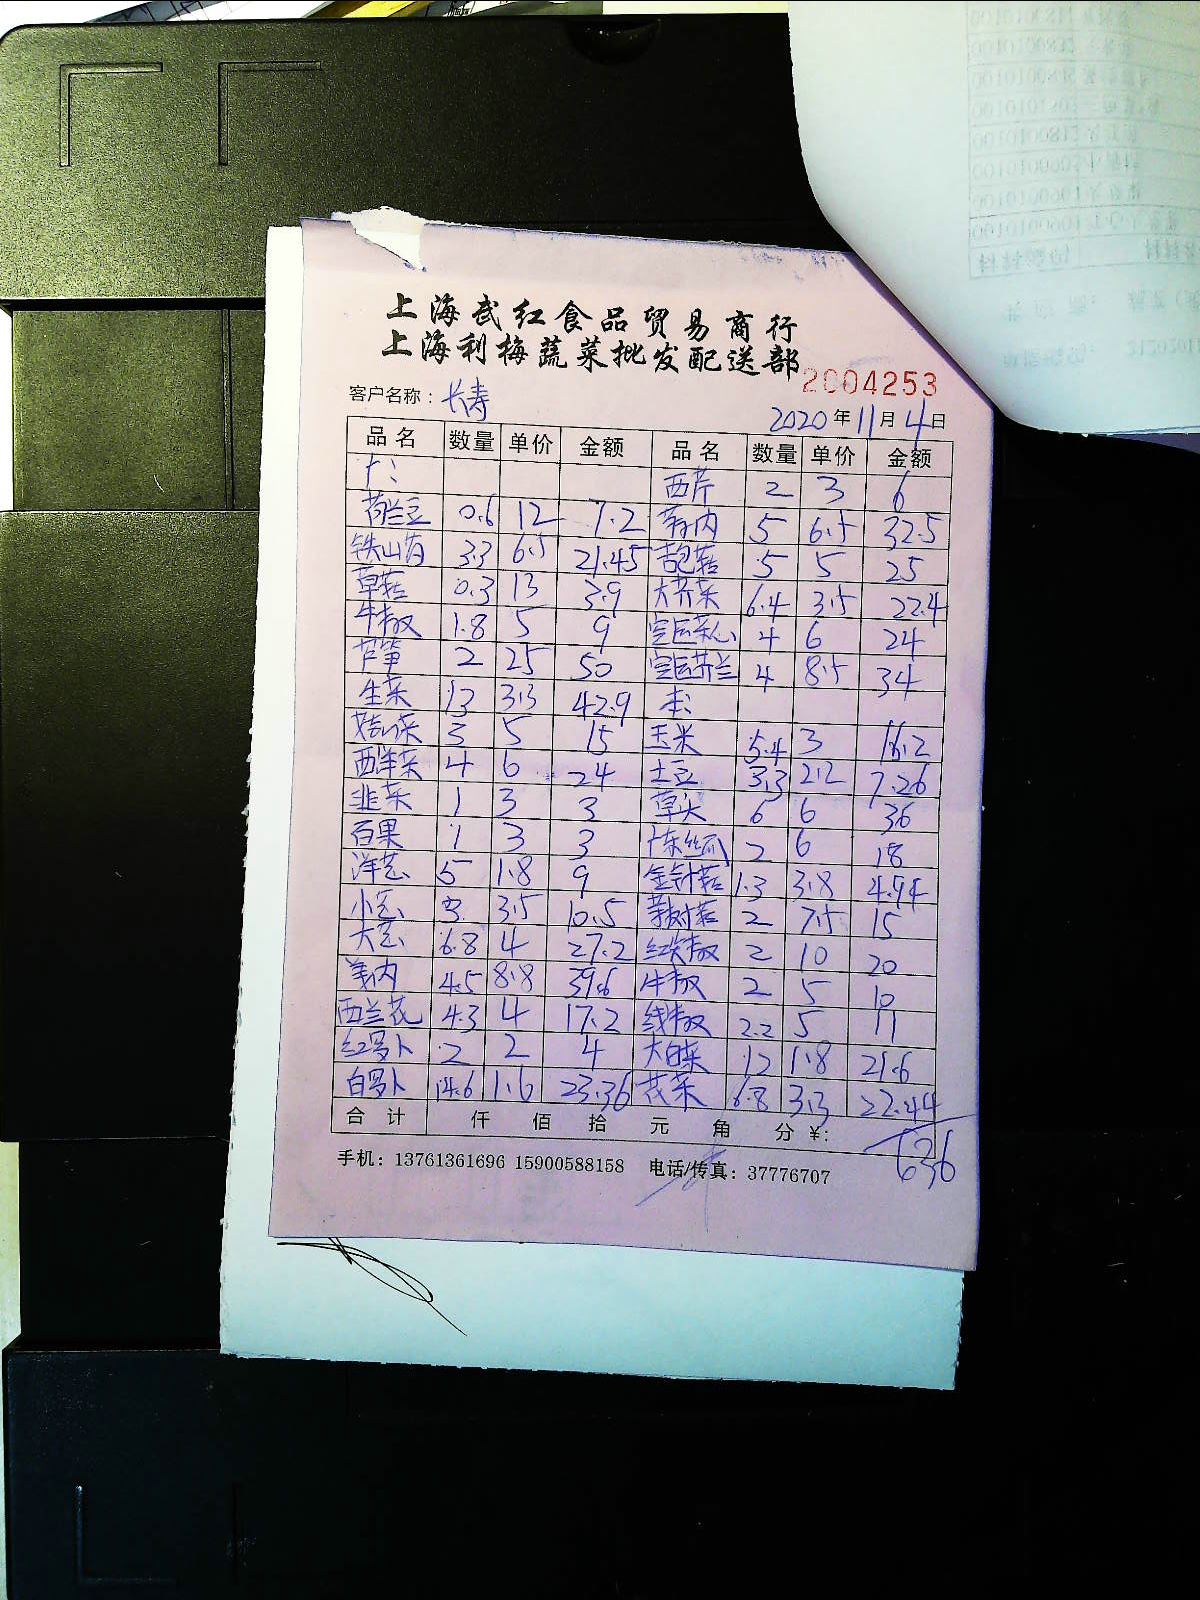 上海武红食品贸易商行
上海利梅蔬菜批发配送部
2004253
客户名称：长寿
2020年11月4日
品名 数量 单价 金额 品名 数量 单价 金额
西芹 2 3 6
荷兰豆 0.6 12 7.2 5 6.5 32.5
铁山药 3.3 6.5 21.45 5 5 25
草菇 0.3 13 3.9 大芥菜 6.4 3.5 22.4
牛椒 1.8 5 9 菜心 4 6 24
芦笋 2 25 50 芥兰 4 8.5 34
生菜 13 3.3 42.9 本:
3 5 15 玉米 5.4 3 16.2
西洋菜 4 6 24 土豆 3.3 2.2 7.26
韭菜 1 3 3 草头 6 6 36
百果 1 3 3 丝瓜 6 18
洋芝 5 1.8 9 金针菇 1.3 3.8 4.94
小芝 3 3.5 10.5 茶树菇 2 7.5 15
大芝 6.8 4 27.2 红尖椒 2 10 20
姜肉 4.5 8.8 39.6 牛椒 2 5 10
西兰花 4.3 4 17.2 线椒 2.2 5 11
红罗卜 2 2 4 大白菜 12 1.8 21.6
白罗卜 14.6 1.6 23.36 茂菜 6.8 3.3 22.44
合计 仟 佰 拾 元 角 分 ¥: 636
手机：13761361696 15900588158 电话/传真：37776707